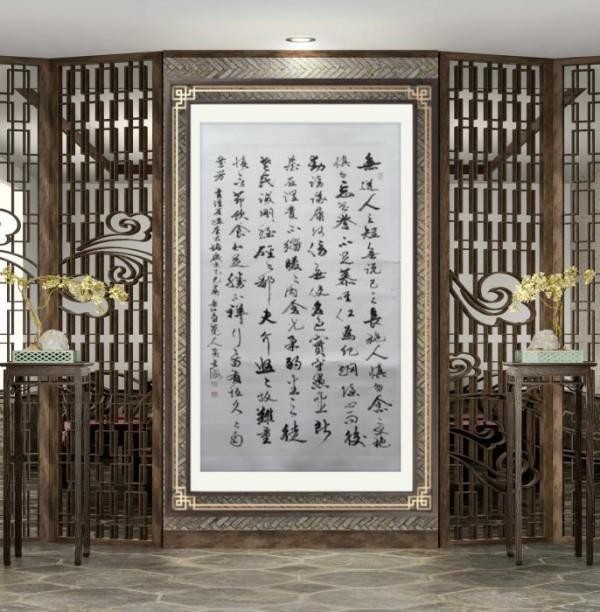 無道人之短無說己之長施人慎勿念受施
慎勿忘世譽不足慕唯仁為紀綱隱心而後
動謗議庸何傷無使名過實守愚聖所
臧在涅貴不緇曖々內含光柔弱生之徒
老氏誡剛強硜々鄙夫介悠々故難量
慎言節飲食知足勝不祥行苟有恆久々自
芬芳 書漢崔瑗座右銘